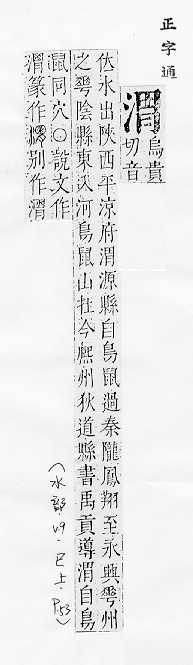 正字通
渭
烏貴
切音
伏水出陝西平涼府渭源縣自鳥鼠過秦隴鳳翔至永興華州
之華陰縣東入河鳥鼠山在今熙州狄道縣書禹貢導渭自鳥
鼠同穴○說文作
渭篆作别作渭
(水部.V9.巳上.P53)